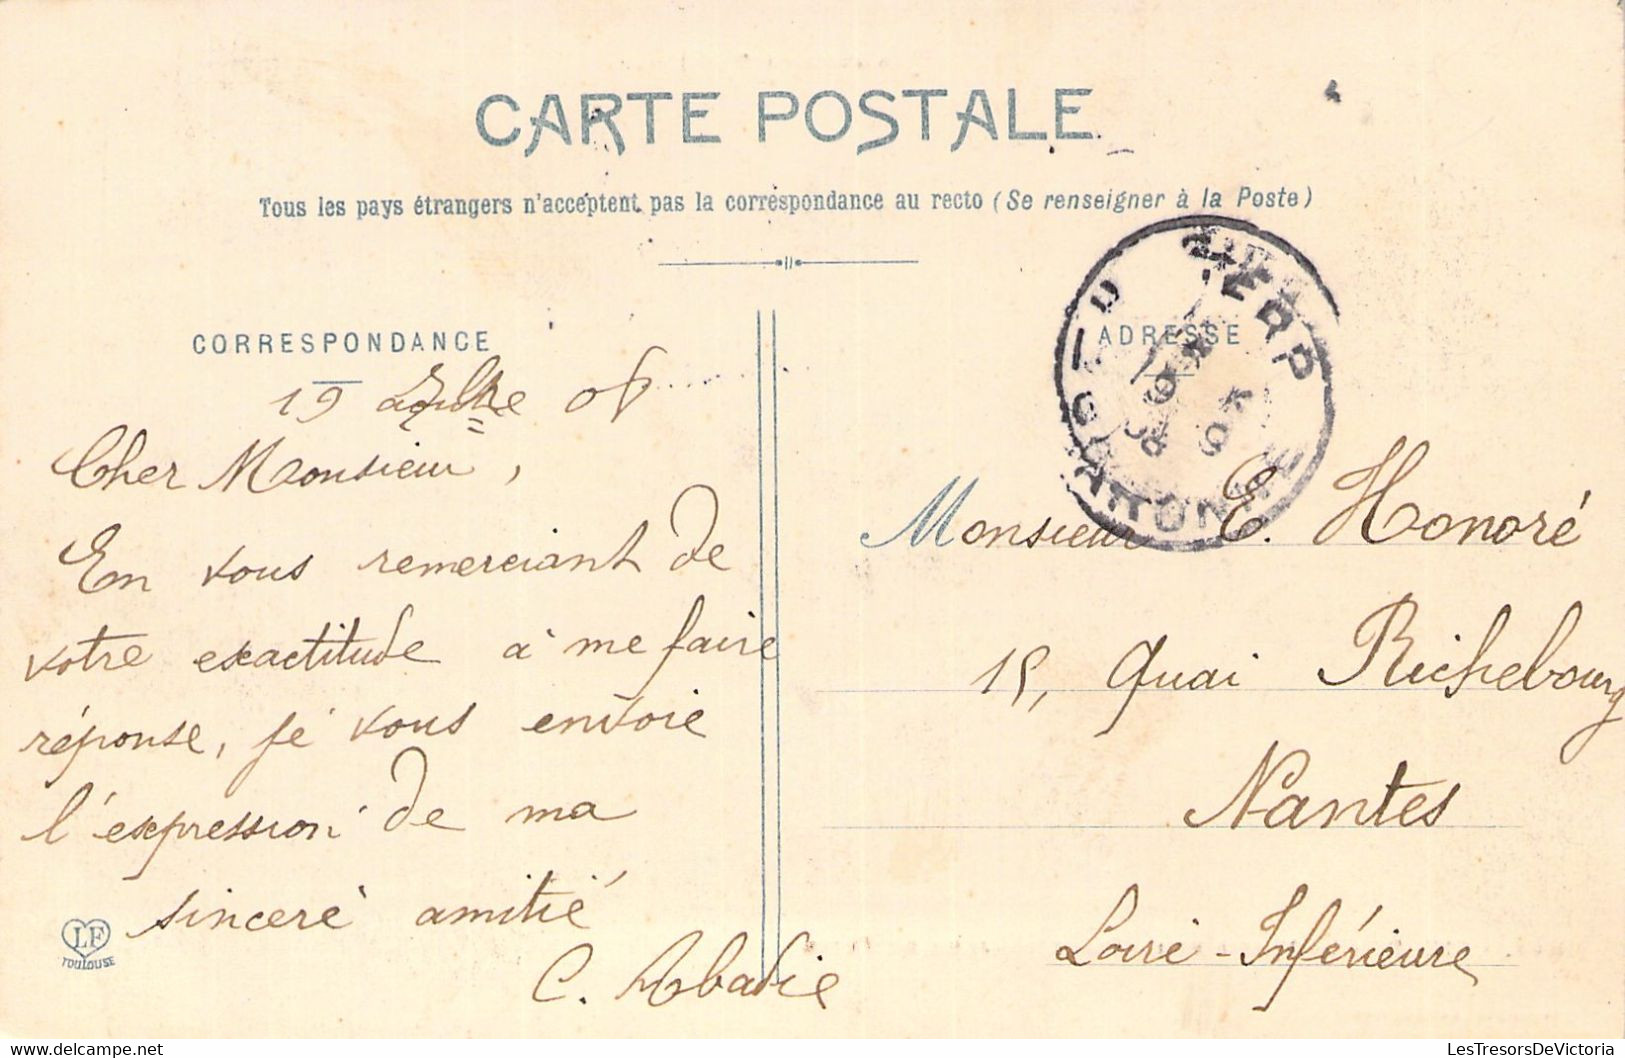 CARTE POSTALE
Tous les pays étrangers n'acceptent pas la correspondance au recto (Se renseigner à la Poste)
CORRESPONDANCE
19 08
Cher Monsieur,
En vous remerciant de
votre exactitude à me faire
réponse, je vous envoie
l'expression de ma
sincère amitié
C. Abadie
LF
TOULOUSE
ADRESSE
CIERP
Hte GARONNE
Monsieur E. Honoré
15, Quai Richebourg
Nantes
Loire-Inférieure
LesTresorsDeVictoria